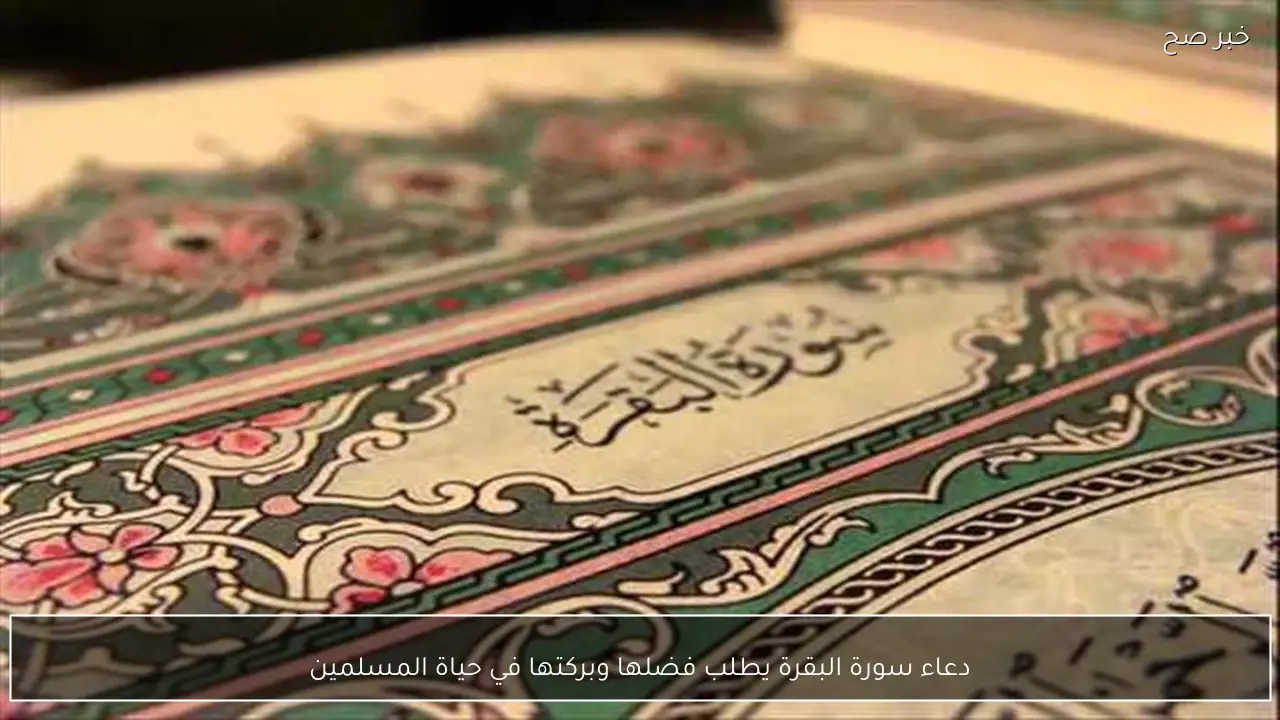 خبر صح
سورة البقرة
دعاء سورة البقرة يطلب فضلها وبركتها في حياة المسلمين